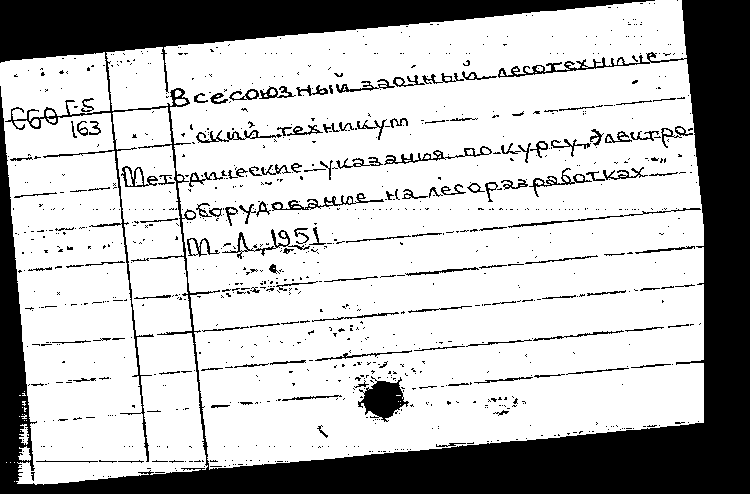 СбО Г-5
163
Всесоюзный заочный лесотехниче-
ский техникум
Методические указания по курсу „Электро-
оборудование на лесоразработках"
М.-Л. 1951